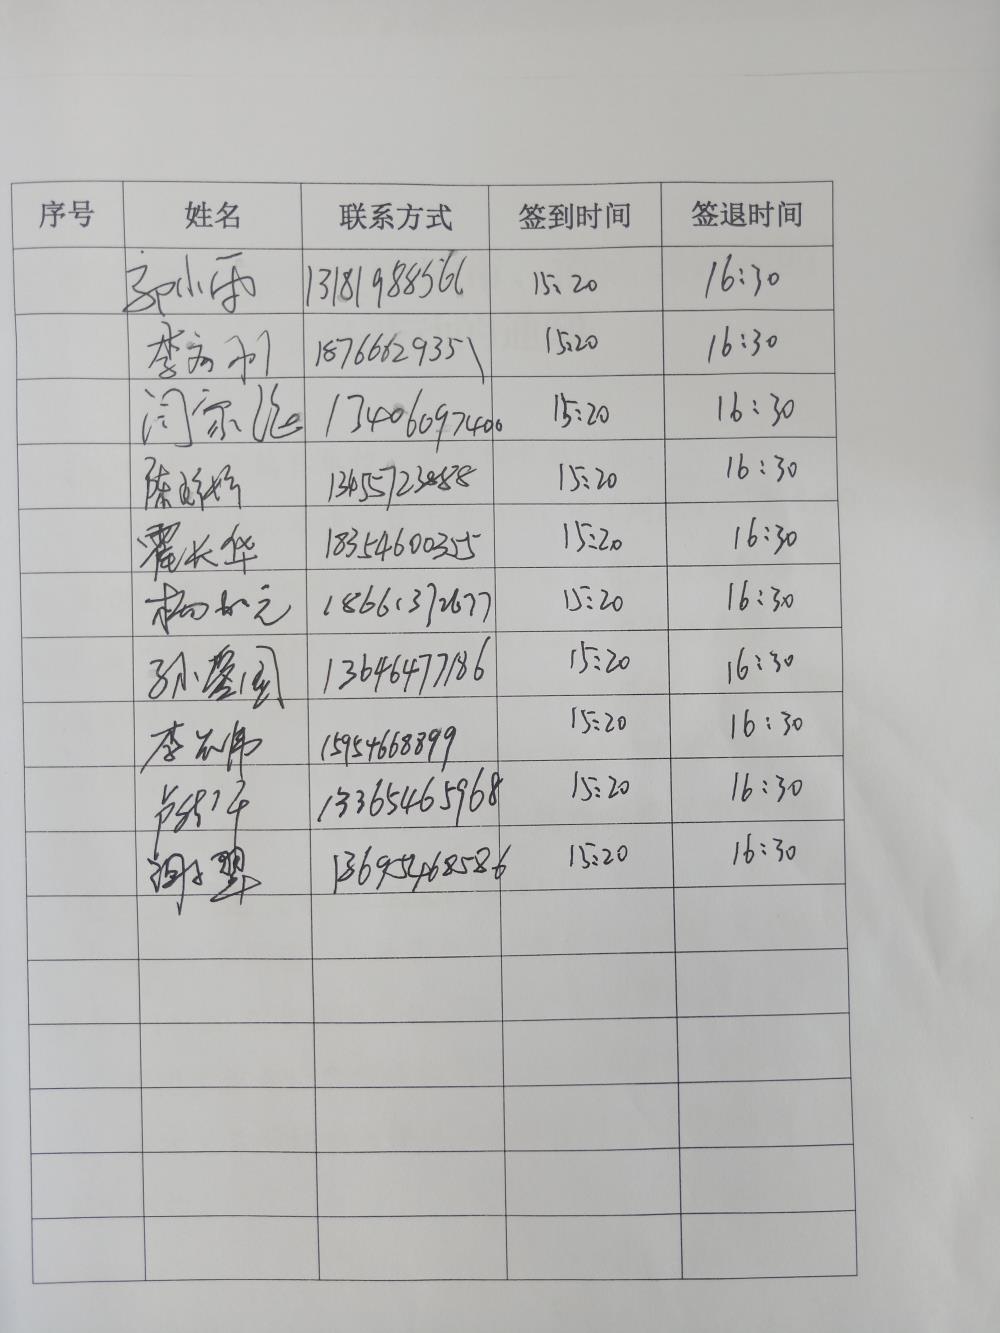 序号 姓名 联系方式 签到时间 签退时间
郭小雨 13181988566 15:20 16:30
李 18766629351 15:20 16:30
闫家 13406097400 15:20 16:30
陈婷婷 15:20 16:30
霍长华 18354600355 15:20 16:30
杨 18661372677 15:20 16:30
孙 13646477186 15:20 16:30
李 伟 15954668899 15:20 16:30
卢 13365465968 15:20 16:30
13695468586 15:20 16:30